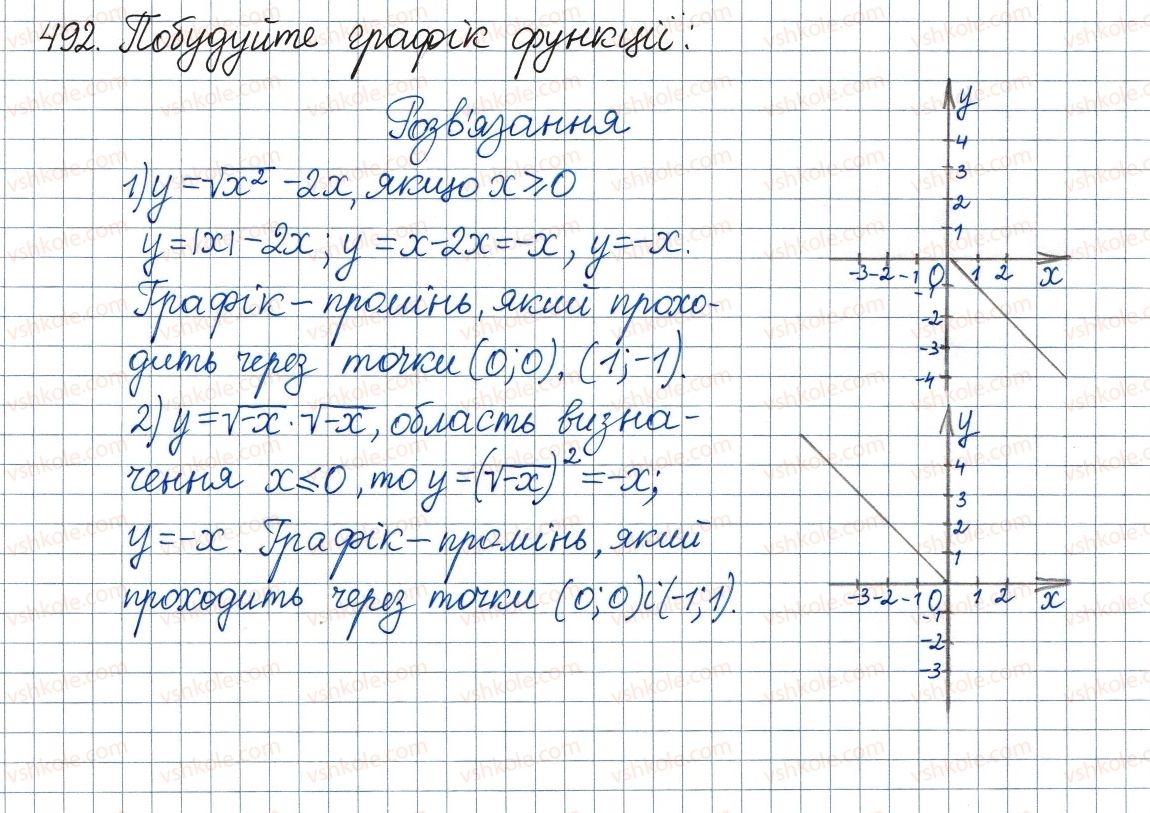 492. Побудуйте графік функції:
Розв'язання
1) y = √x² - 2x, якщо x ≥ 0
y = |x| - 2x; y = x - 2x = -x, y = -x.
Графік – промінь, який прохо-
дить через точки (0; 0), (1; -1).
2) y = √-x · √-x, область визна-
чення x ≤ 0, то y = (√-x)² = -x;
y = -x. Графік – промінь, який
проходить через точки (0; 0) і (-1; 1).
y
4
3
2
1
-3 -2 -1 0 1 2 x
-1
-2
-3
-4
y
4
3
2
1
-3 -2 -1 0 1 2 x
-1
-2
-3
vshkole.com